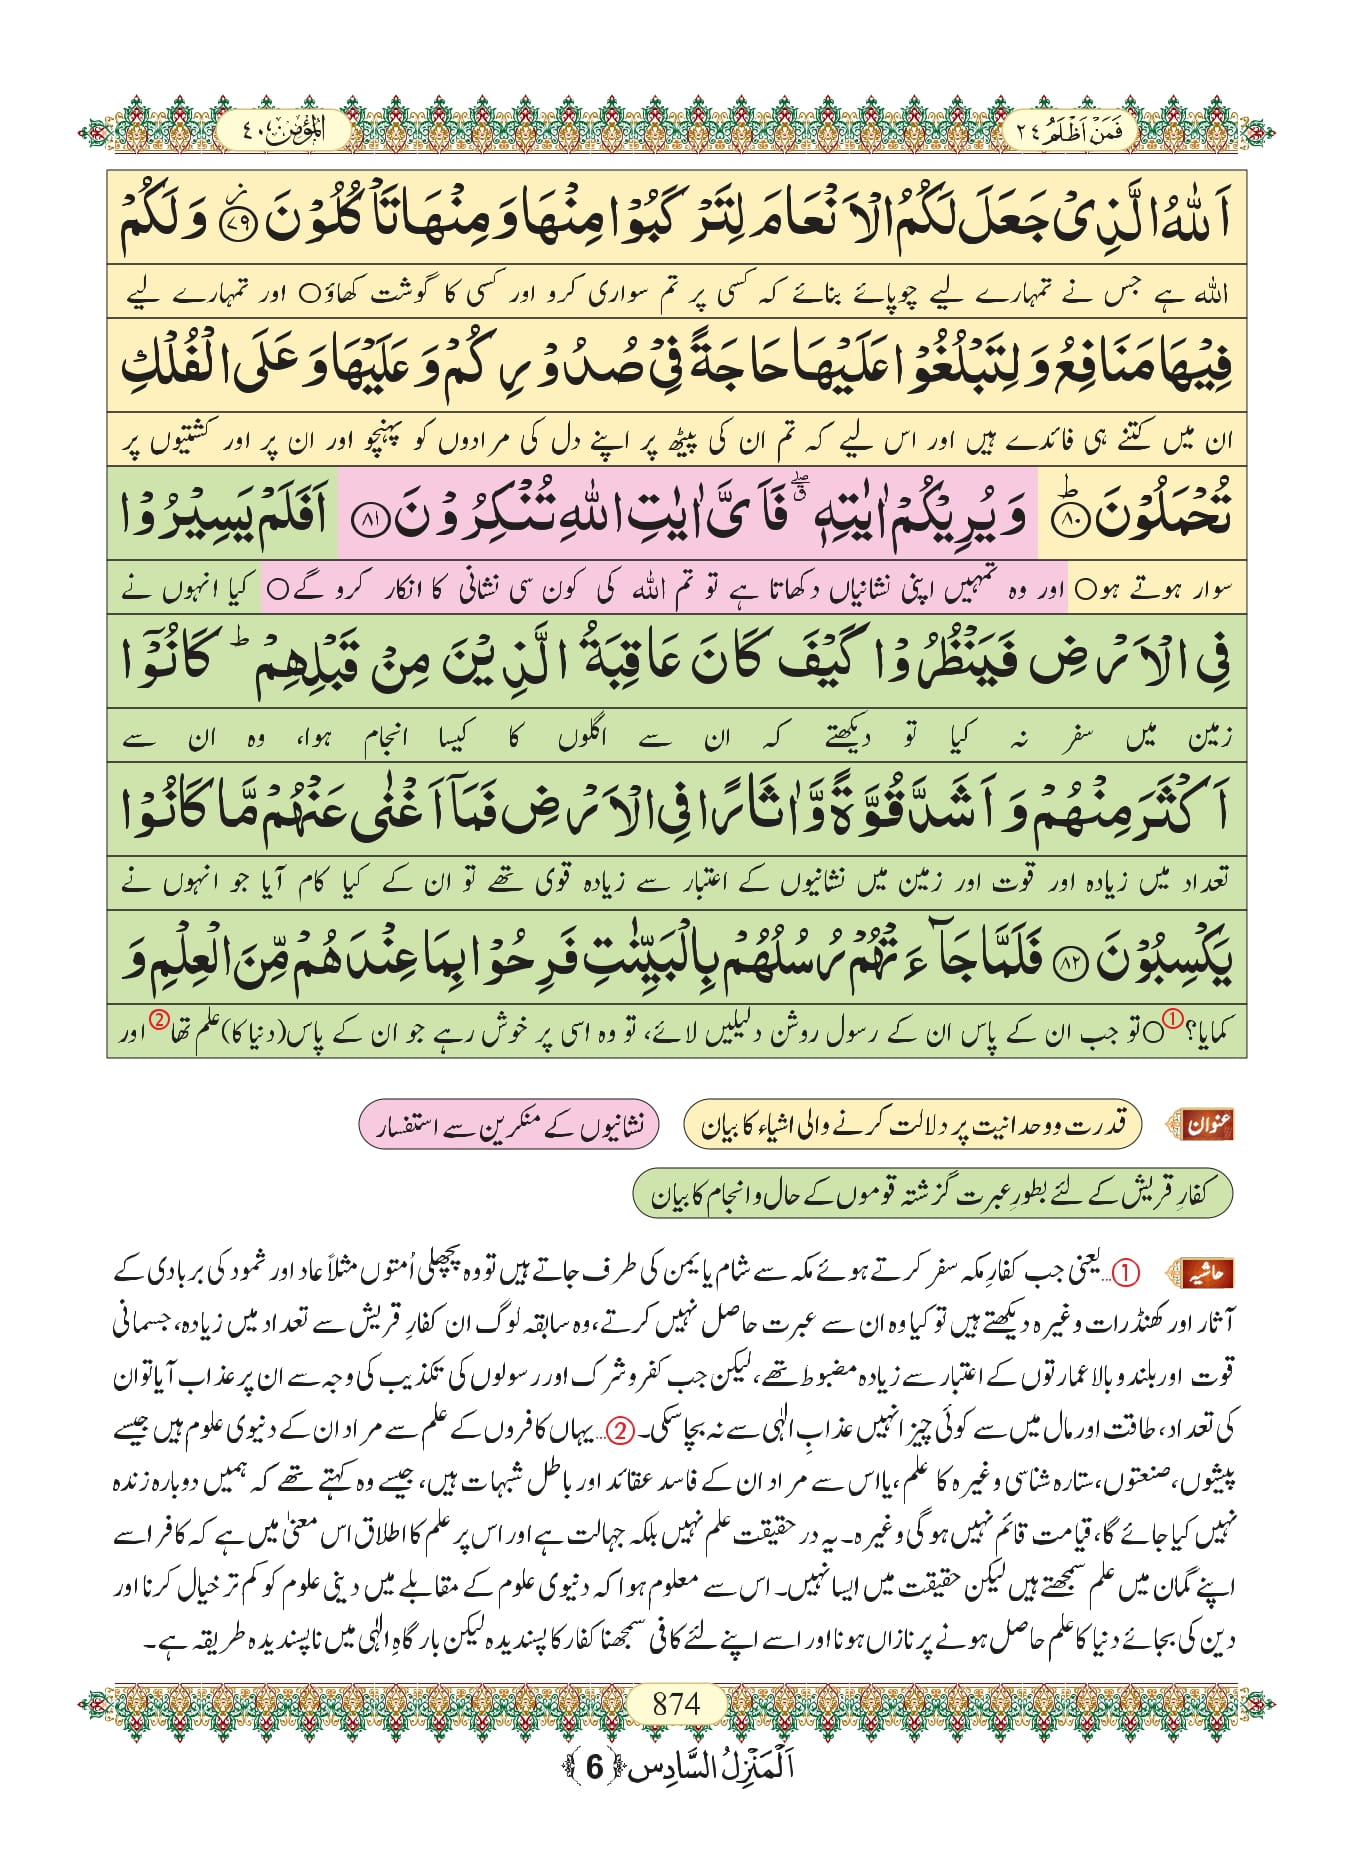 فَمَنْ اَظْلَمُ ٢٤
المؤمن ٤٠
اَللّٰهُ الَّذِیْ جَعَلَ لَكُمُ الْاَنْعَامَ لِتَرْكَبُوْا مِنْهَا وَ مِنْهَا تَاْكُلُوْنَ٘ ﴿٧٩﴾ وَ لَكُمْ
اللہ ہے جس نے تمہارے لیے چوپائے بنائے کہ کسی پر تم سواری کرو اور کسی کا گوشت کھاؤ○ اور تمہارے لیے
فِیْهَا مَنَافِعُ وَ لِتَبْلُغُوْا عَلَیْهَا حَاجَةً فِیْ صُدُوْرِكُمْ وَ عَلَیْهَا وَ عَلَى الْفُلْكِ
ان میں کتنے ہی فائدے ہیں اور اس لیے کہ تم ان کی پیٹھ پر اپنے دل کی مرادوں کو پہنچو اور ان پر اور کشتیوں پر
تُحْمَلُوْنَؕ ﴿٨٠﴾ وَ یُرِیْكُمْ اٰیٰتِهٖ ۖۗ فَاَیَّ اٰیٰتِ اللّٰهِ تُنْكِرُوْنَ ﴿٨١﴾ اَفَلَمْ یَسِیْرُوْا
سوار ہوتے ہو○ اور وہ تمہیں اپنی نشانیاں دکھاتا ہے تو تم اللہ کی کون سی نشانی کا انکار کرو گے○ کیا انہوں نے
فِی الْاَرْضِ فَیَنْظُرُوْا كَیْفَ كَانَ عَاقِبَةُ الَّذِیْنَ مِنْ قَبْلِهِمْؕ كَانُوْۤا
زمین میں سفر نہ کیا تو دیکھتے کہ ان سے اگلوں کا کیسا انجام ہوا، وہ ان سے
اَكْثَرَ مِنْهُمْ وَ اَشَدَّ قُوَّةً وَّ اٰثَارًا فِی الْاَرْضِ فَمَاۤ اَغْنٰى عَنْهُمْ مَّا كَانُوْا
تعداد میں زیادہ اور قوت اور زمین میں نشانیوں کے اعتبار سے زیادہ قوی تھے تو ان کے کیا کام آیا جو انہوں نے
یَكْسِبُوْنَ ﴿٨٢﴾ فَلَمَّا جَآءَتْهُمْ رُسُلُهُمْ بِالْبَیِّنٰتِ فَرِحُوْا بِمَا عِنْدَهُمْ مِّنَ الْعِلْمِ وَ
کمایا؟①○ تو جب ان کے پاس ان کے رسول روشن دلیلیں لائے، تو وہ اسی پر خوش رہے جو ان کے پاس(دنیا کا)علم تھا② اور
عنوان قدرت ووحدانیت پر دلالت کرنے والی اشیاء کا بیان نشانیوں کے منکرین سے استفسار
کفارِ قریش کے لئے بطورِ عبرت گزشتہ قوموں کے حال و انجام کا بیان
حاشیہ ①...یعنی جب کفارِ مکہ سفر کرتے ہوئے مکہ سے شام یا یمن کی طرف جاتے ہیں تو وہ پچھلی اُمتوں مثلاً عاد اور ثمود کی بربادی کے
آثار اور کھنڈرات وغیرہ دیکھتے ہیں تو کیا وہ ان سے عبرت حاصل نہیں کرتے، وہ سابقہ لوگ ان کفارِ قریش سے تعداد میں زیادہ، جسمانی
قوت اور بلند و بالا عمارتوں کے اعتبار سے زیادہ مضبوط تھے، لیکن جب کفر و شرک اور رسولوں کی تکذیب کی وجہ سے ان پر عذاب آیا تو ان
کی تعداد، طاقت اور مال میں سے کوئی چیز انہیں عذابِ الٰہی سے نہ بچا سکی۔ ②...یہاں کافروں کے علم سے مراد ان کے دنیوی علوم ہیں جیسے
پیشوں، صنعتوں، ستارہ شناسی وغیرہ کا علم، یا اس سے مراد ان کے فاسد عقائد اور باطل شبہات ہیں، جیسے وہ کہتے تھے کہ ہمیں دوبارہ زندہ
نہیں کیا جائے گا، قیامت قائم نہیں ہوگی وغیرہ۔ یہ در حقیقت علم نہیں بلکہ جہالت ہے اور اس پر علم کا اطلاق اس معنیٰ میں ہے کہ کافر اسے
اپنے گمان میں علم سمجھتے ہیں لیکن حقیقت میں ایسا نہیں۔ اس سے معلوم ہوا کہ دنیوی علوم کے مقابلے میں دینی علوم کو کم تر خیال کرنا اور
دین کی بجائے دنیا کا علم حاصل ہونے پر نازاں ہونا اور اسے اپنے لئے کافی سمجھنا کفار کا پسندیدہ لیکن بارگاہِ الٰہی میں ناپسندیدہ طریقہ ہے۔
874
اَلْمَنْزِلُ السَّادِس ﴿6﴾